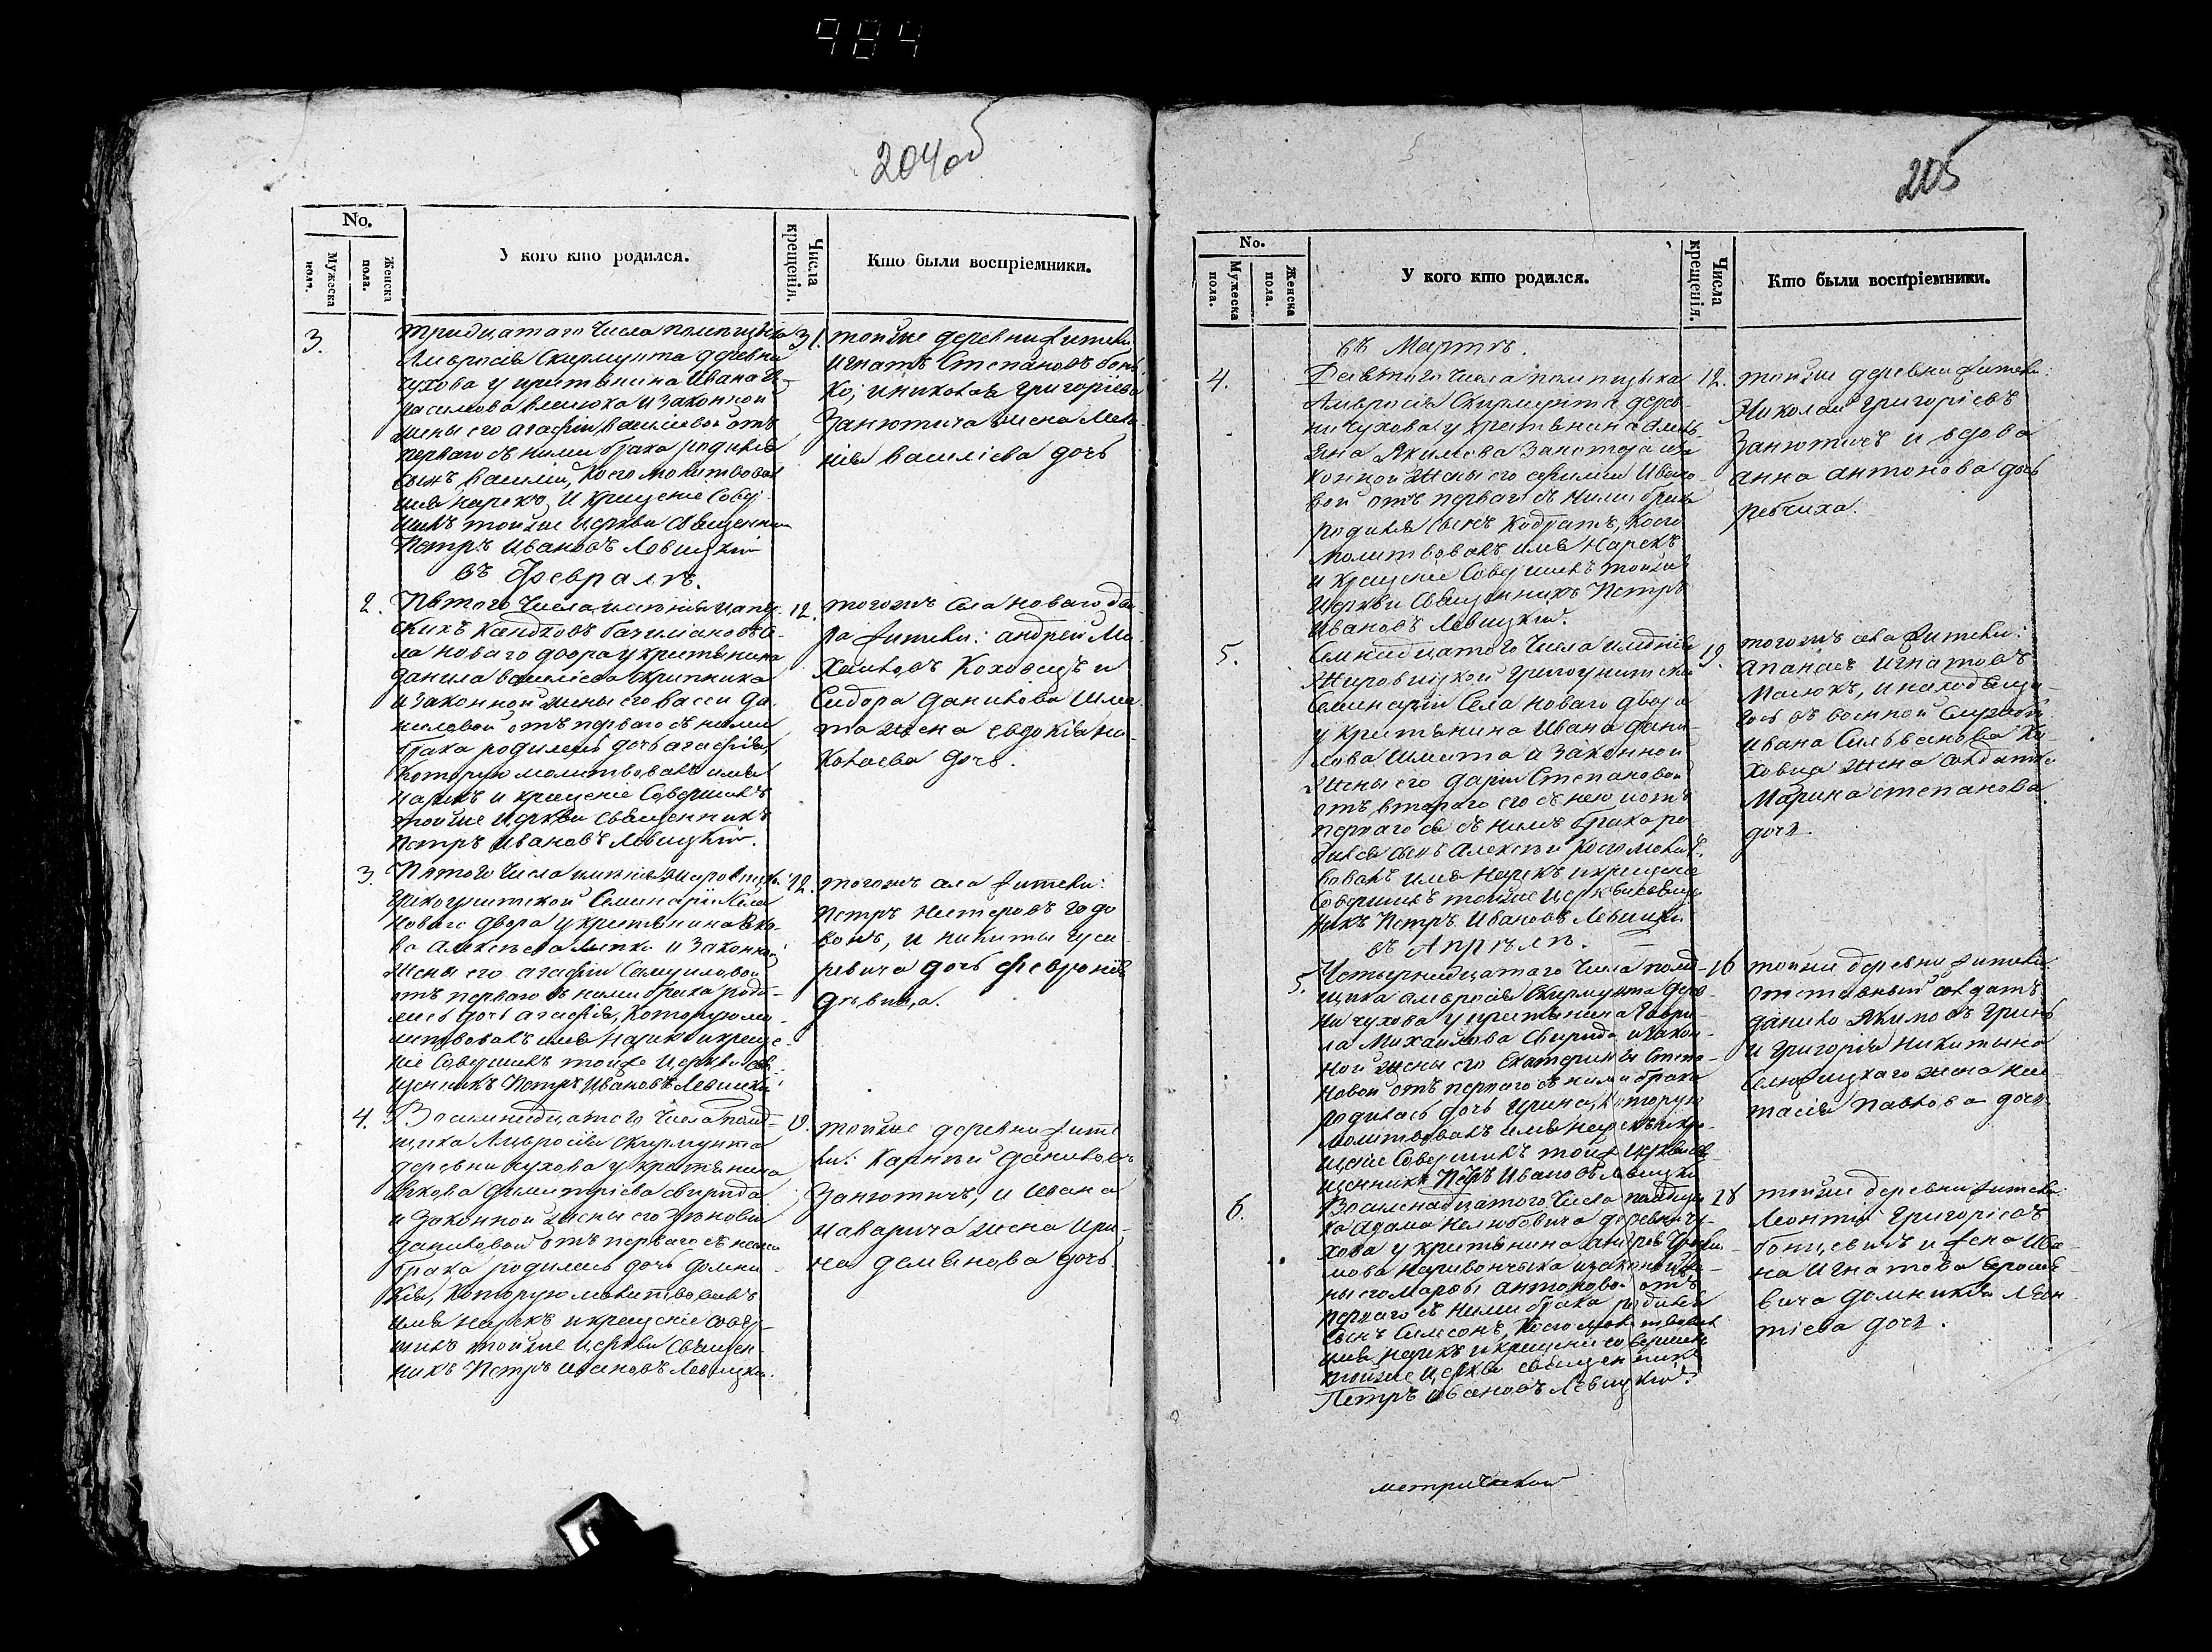 984
204 об
No.
Мужеска пола.
Женска пола.
У кого кто родился.
Числа крещенія.
Кто были воспріемники.
3.
тридцатаго Числа помещика
Амвросія Скирмунта деревни
чухова у крестьянина Ивана
и законной
жены его агафіи василіевой отъ
перваго съ ними брака родился
сынъ василій, коего молитвовал
имя нареко, и крещеніе совер
шилъ тойже церкви Священник
Петръ Ивановъ Левицкій
31.
тойже деревни жители
Игнатъ Степановъ
ко, и николая григоріева
Занютича жена Мела
нія василіева дочь
въ Февралѣ.
2.
Пятого Числа имѣнія
села новаго двора у крестьянина
данила василіева скрипника
и законной жены его васси да
ниловой отъ перваго съ ними
брака родилась дочь агафія,
которую молитвовалъ имя
нарекъ и крещеніе Совершилъ
тойже церкви священникъ
Петръ Ивановъ Левицкій.
12.
тогожъ села новаго дво
ра жители: андрей Ми
хайловъ Коховецъ и
Сидора данилова Шма
та жена евдокія ни
колаева дочь.
3.
Пятого Числа имѣнія жировицкой
грекоунитской Семинаріи Села
новаго двора у крестьянина Яко
ва алексѣева и законной
жены его агафіи Самуиловой
отъ перваго съ ними брака роди
лась дочь агафія, которую мо
литвовалъ имя нарекъ и креще
ніе Совершилъ тойже церкви Свя
щенникъ Петръ Ивановъ Левицкій
12.
тогожъ села жители:
Петръ Нестеровъ
и никиты гуса
ревича дочь феврониа
дѣвица.
4.
Восемнадцатого Числа помѣ
щика Амвросія Скирмунта
деревни чухова у крестьянина
Якова димитріева свирида
и законной жены его Зѣновіи
даниловой отъ перваго съ ними
брака родилась дочь домни
кія, которую молитвовалъ
имя нарекъ и крещеніе совер
шилъ тойже церкви Священ
никъ Петръ Ивановъ Левицкій.
тойже деревни жите
ли: Карпъ даниловъ
Занютичъ, и Ивана
Макарича жена Ири
на демьянова дочь
205
No.
Мужеска пола.
Женска пола.
У кого кто родился.
Числа крещенія.
Кто были воспріемники.
въ Мартѣ.
4.
Девятого Числа помещика
Амвросія Скирмунта дерев
ни чухова у крестьянина
яна Якимова и за
конной жены его евфиміи Ивано
вой отъ перваго съ ними брака
родился сынъ Кодратъ, коего
молитвовалъ имя Нарекъ
и крещеніе Совершилъ тойже
Церкви Священникъ Петръ
Ивановъ Левицкій.
12.
тойже деревни жители:
Николай Григоріевъ
Занютичъ и вдова
анна антонова дочь
ребчиха.
5.
Семнадцатого Числа имѣнія
Жировицкой грекоунитской
Семинаріи Села новаго двора
у крестьянина Ивана дани
лова Шмата и законной
жены его дарьи Степановой
отъ втораго его съ нею и отъ
перваго ея съ нимъ брака ро
дился сынъ Алексѣй коего молит
вовалъ имя нарекъ и крещеніе
Совершилъ тойже церкви Священ
никъ Петръ Ивановъ Левицкій
19.
тогожъ села жители:
Апанасъ Игнатовъ
Масюкъ, и находящаго
ся въ военной службѣ
Ивана Сильванова Ко
ховца жена солдатка
Марина степанова
дочь.
въ Апрѣлѣ.
5.
Четырнадцатаго Числа помѣ
щика амвросія Скирмунта дере
ни чухова у крестьянина Гаври
ла Михайлова Свирида и закон
ной жены его Екатерины Степа
новой отъ перваго съ ними брака
родилась дочь Ирина, которую
молитвовалъ имя нарекъ и кре
щеніе Совершилъ тойже церкви свя
щенникъ Петръ Ивановъ Левицкій
16
тойже деревни жители:
отставный солдатъ
данило Якимовъ Гринь
и григорія никитына
жена нас
тасія павлова дочь
6.
Восемнадцатого Числа помѣщи
ка Адама Нелюбовича деревни чу
хова у крестьянина андрея
и законной же
ны его марьи антоновой отъ
перваго съ ними брака родился
сынъ Симеонъ, коего молитвовалъ
имя нарекъ и крещеніе совершилъ
тойже церкви священникъ
Петръ Ивановъ Левицкій.
28
тойже деревни жители:
Леонтій Григоріевъ
и жена Ива
на Игнатова
вича домникія Леон
тіева дочь.
метрической